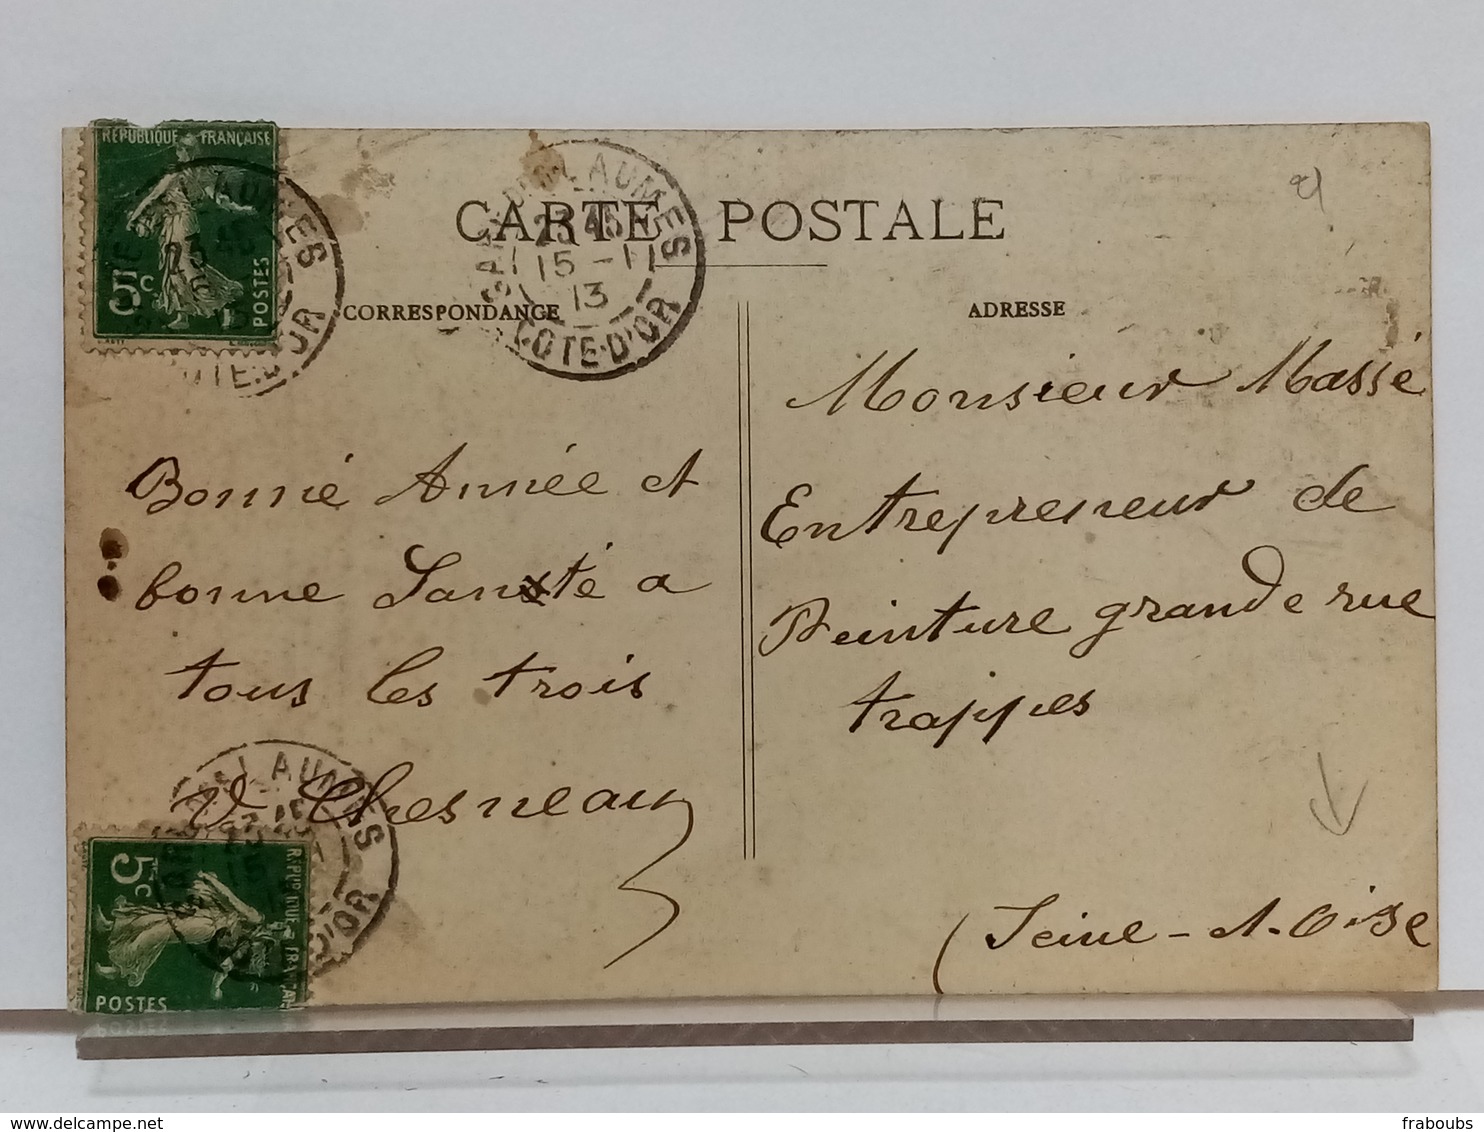 RÉPUBLIQUE FRANÇAISE
5c
POSTES
CARTE POSTALE
AUMES
23 45
15 - 1
13
COTE-D'OR
CORRESPONDANCE
ADRESSE
Bonné Année et
bonne Santé a
tous les trois
V. Chesneau
Monsieur Massé
Entrepreneur de
Peinture grande rue
trappes
(Seine-et-Oise
5c
POSTES
RÉPUBLIQUE FRANÇAISE
delcampe.net
fraboubs